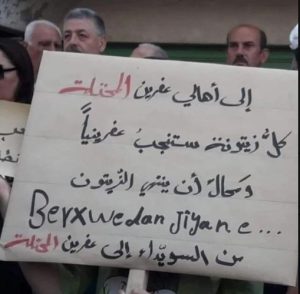 إلى أهالي عفرين المحتلة
كلُّ زيتونة ستنجبُ عفرينياً
ومحالٌ أن ينتهي الزّيتون
Berxwedan Jiyane...
من السويداء إلى عفرين المحتلة